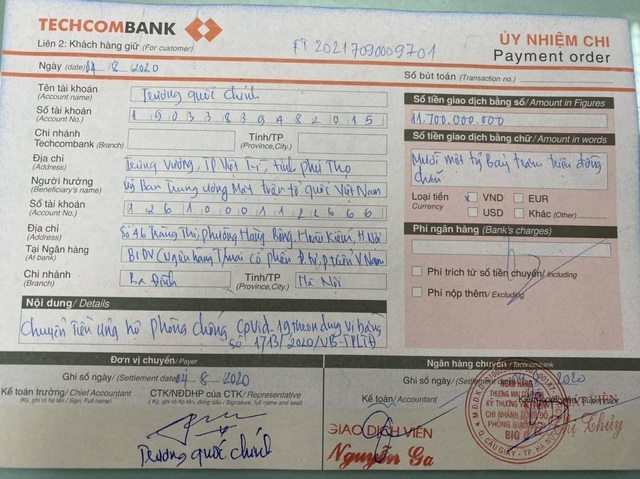 TECHCOMBANK
Liên 2: Khách hàng giữ (For customer)
FT 20217090009701
ỦY NHIỆM CHI
Payment order
Ngày (date) 04 - 8 - 2020
Số bút toán (Transaction no.)
Tên tài khoản (Account name) Trương quốc chính
Số tài khoản (Account No.) 19033839482015
Chi nhánh Techcombank (Branch) Tỉnh/TP (Province,City.)
Địa chỉ (Address) Trưng Vương, TP Việt Trì, tỉnh Phú Thọ
Người hưởng (Beneficiary's name) Uỷ Ban Trung ương Mặt trận tổ quốc Việt Nam
Số tài khoản (Account No.) 12610001122666
Địa chỉ (Address) Số 46 Tràng Thi, phường Hàng Bông, Hoàn Kiếm, H Nội
Tại Ngân hàng (At bank) BIDV (Ngân hàng T/mại Cổ phần Đ.tư, p.triển V.Nam
Chi nhánh (Branch) Ba Đình Tỉnh/TP (Province,City.) Hà Nội
Số tiền giao dịch bằng số/ Amount in Figures
11.700.000.000
Số tiền giao dịch bằng chữ/ Amount in words
Mười một tỷ Bảy trăm triệu đồng
chẵn
Loại tiền Currency x VND EUR
USD Khác (Other)
Phí ngân hàng (Bank's charges)
Phí trích từ số tiền chuyển/ Including
Phí nộp thêm/ Excluding
Nội dung/ Details
Chuyển tiền ủng hộ phòng chống Covid-19 theo vi bằng
Số 1713/2020/VB-TPLTĐ
Đơn vị chuyển/ Payer
Ngân hàng chuyển/
Ghi sổ ngày/ (Settlement date) 04 - 8 - 2020
Ghi sổ ngày/ (Settlement 2020
Kế toán trưởng/ Chief Accountant
(Ký, ghi rõ họ tên / Sign, Full name)
CTK/NĐDHP của CTK/ Representative
(Ký, ghi rõ họ tên, đóng dấu / Signature, full name and seal)
NGÂN HÀNG
THƯƠNG MẠI CỔ PHẦN
KỸ THƯƠNG VIỆT NAM
CHI NHÁNH
PHÒNG GIAO DỊCH
Q. CẦU GIẤY - TP. HÀ NỘI
GIAO DỊCH VIÊN
Nguyễn Ga
Thị Thủy
Trương quốc chính